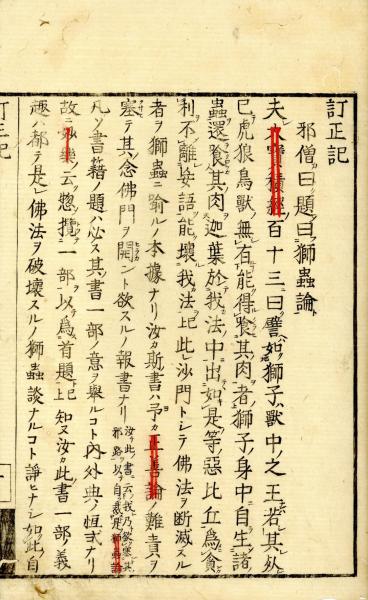 訂正記
邪僧曰ク題曰獅蟲論ト
夫大寶積經百十三曰譬如獅子ハ獸中之王若其死
已虎狼鳥獸無有能得食其肉者獅子ノ身中自生諸
蟲還食其肉迦葉於我法中出如是等惡比丘爲貪
利不離妄語能壞我法上記此レ沙門トシテ佛法ヲ斷滅スル
者ヲ獅蟲ニ喩ル本據ナリ汝カ斯書ハ予カ正善論ノ難責ヲ
塞テ其ノ念佛門ヲ開ント欲スルノ報書ナリ
凡ソ書籍ノ題ハ必ス其書一部ノ意ヲ舉ルコト内外典ノ恒式ナリ
故ニ妙樂云惣攬一部以爲首題上記知ヌ汝カ此書一部ノ義
趣ハ都テ是レ佛法ヲ破壞スルノ獅蟲談ナルコト諍ヒナシ如此ノ自
訂正記